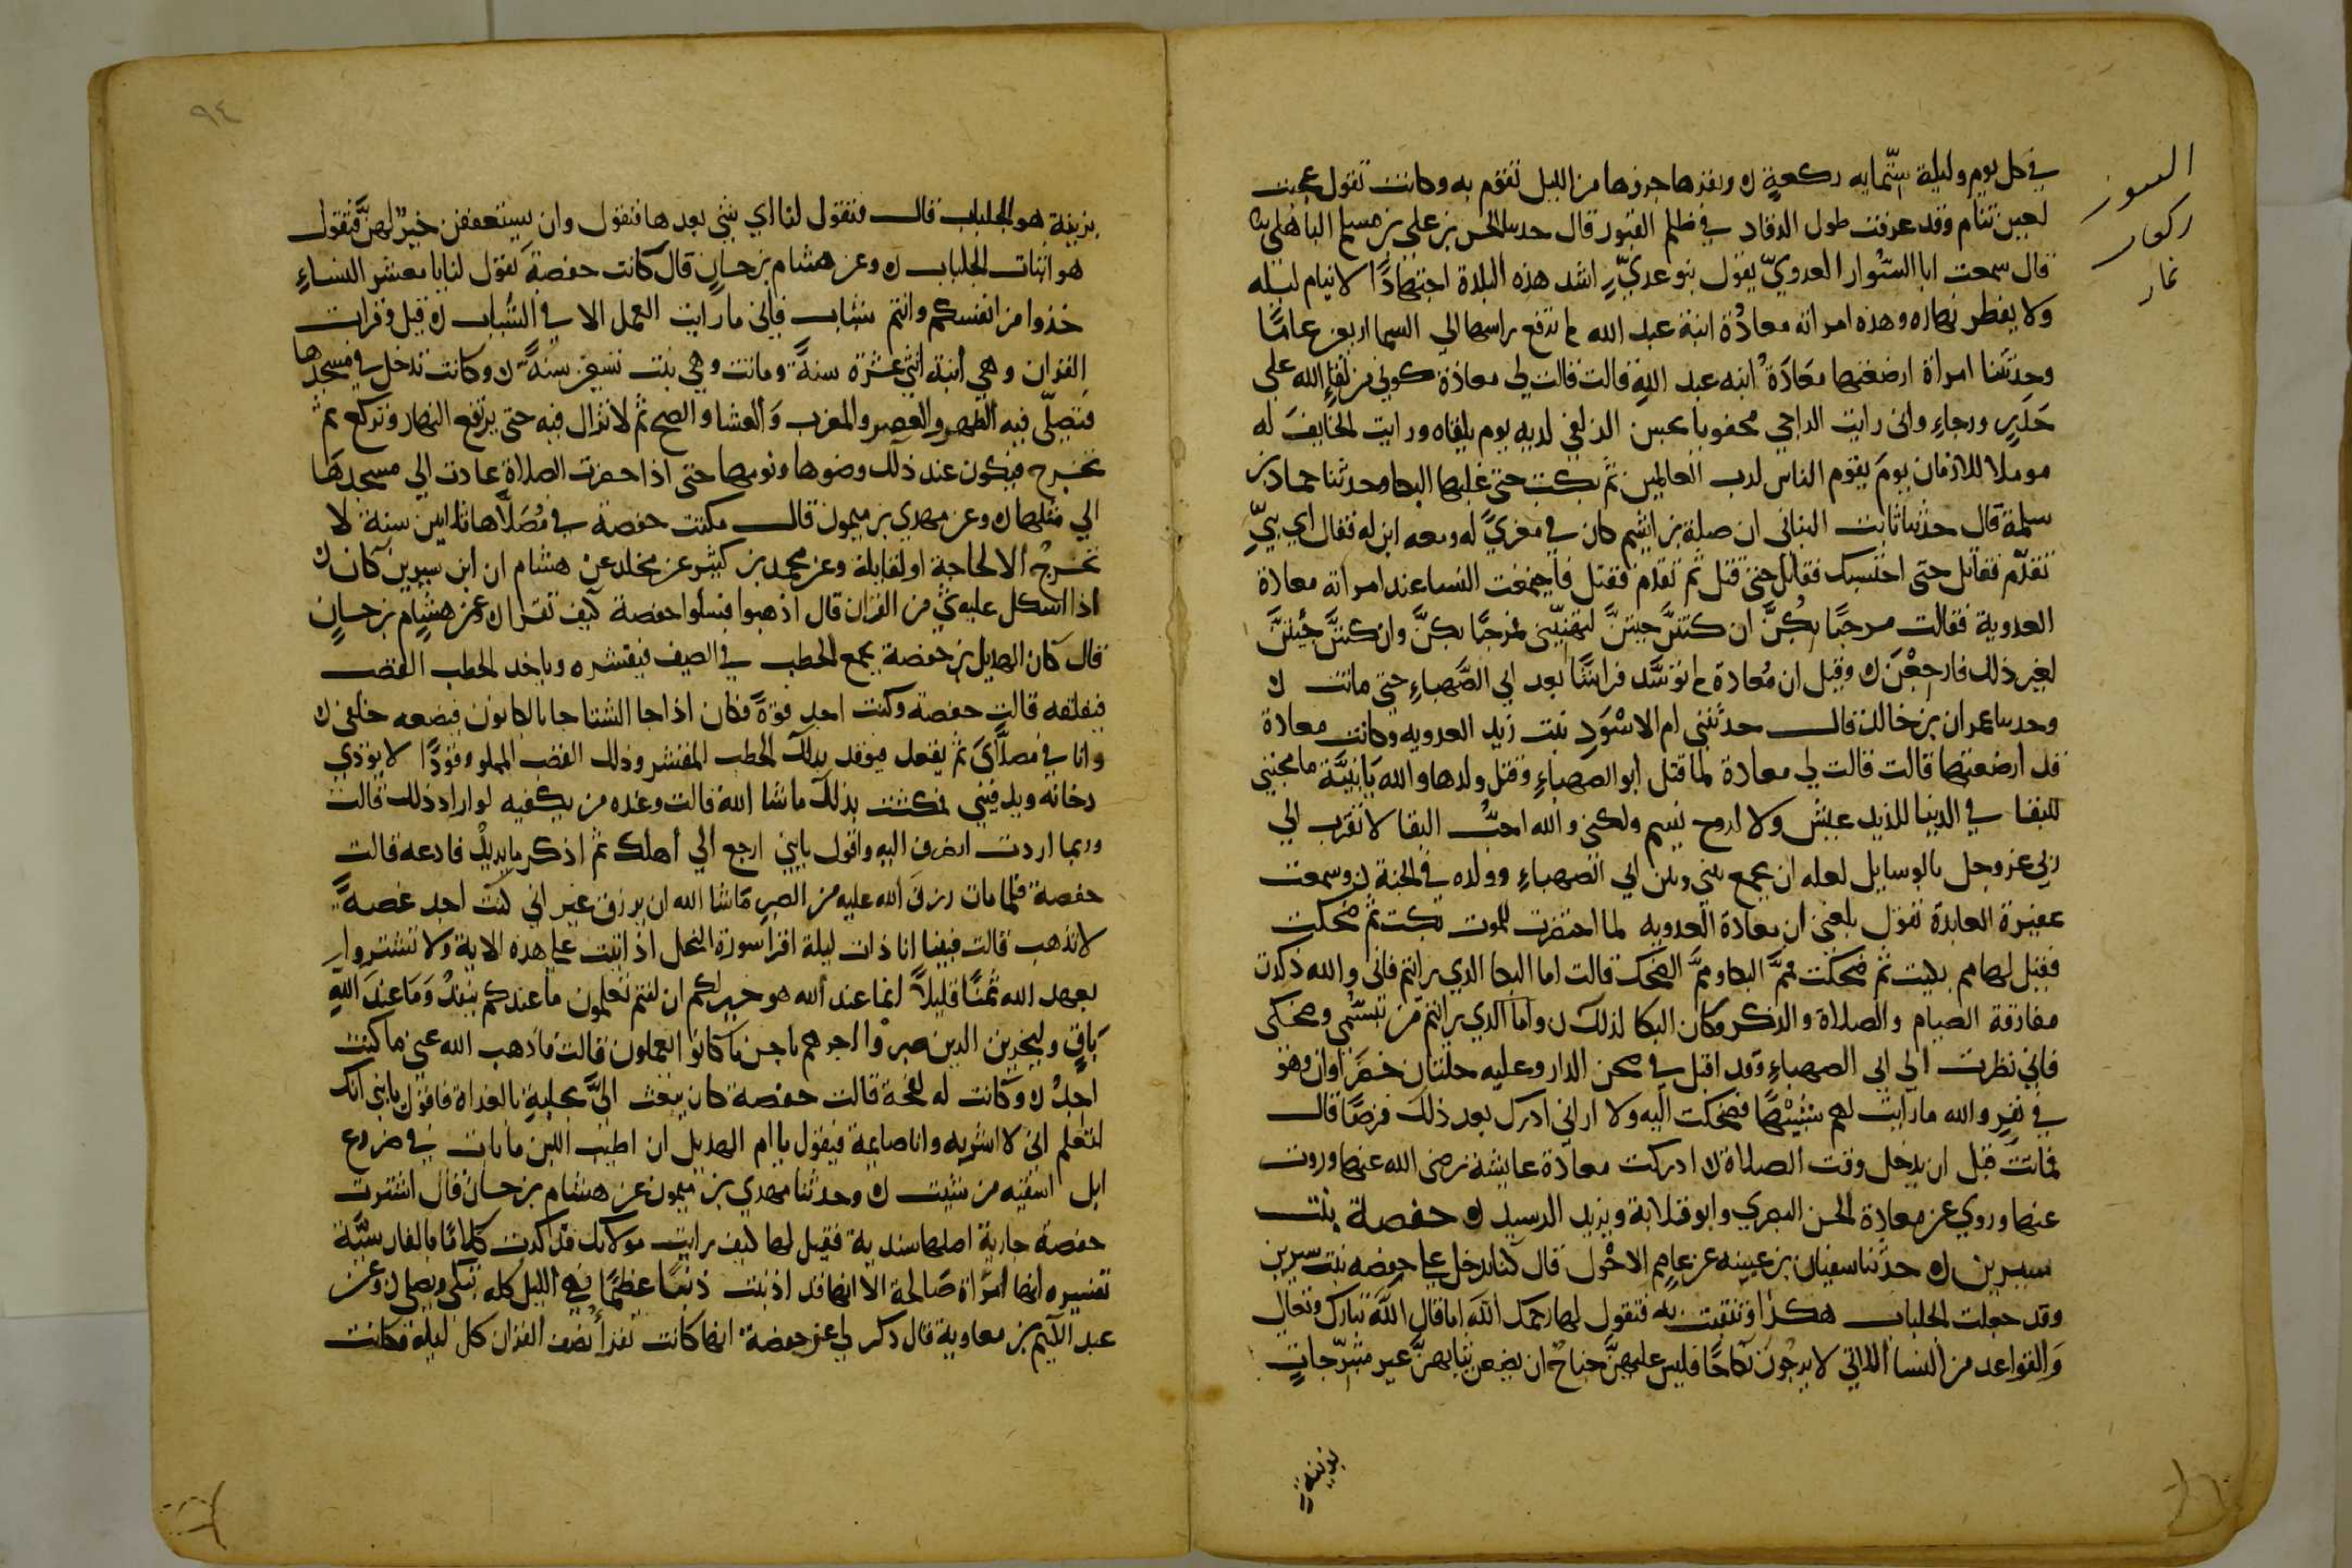 في كل يوم وليلة ستماية ركعة ن وتقرا جزوها من الليل تقوم به وكانت تقول عجبت
لعين تنام وقد عرفت طول الرقاد في ظلم القبور قال حدثنا الحسن بن علي بن مسلم الباهلي
قال سمعت ابا السوار العدوي يقول بنو عدي اشد هذه البلدة اجتهادا لا ينام ليله
ولا يفطر نهاره وهذه امراته معادة ابنة عبد الله لم ترفع راسها الي السما اربعين عاما
وحدثتنا امراة ارضعتها معادة ابنه عبد الله قالت قالت لي معاذة كوني من لقاء الله علي
حذر ورجاء واني رايت الراجي محقوبا بحسن الزلفي لديه يوم يلقاه ورايت الخايف له
موملا للازمان يوم يقوم الناس لرب العالمين ثم بكت حتي غلبها البكا وحدثنا حماد بن
سلمة قال حدثنا ثابت البناني ان صلة بن اشيم كان في مغزي له ومعه ابن له فقال اي بني
تقدم فقاتل حتي احتسبك فقاتل حتي قتل ثم تقدم فقتل فاجتمعت النسا عند امراته معادة
العدوية فقالت مرحبا بكن ان كنتن جيتن لتهنيني فمرحبا بكن وان كنتن جيتن
لغير ذلك فارجعن ن وقيل ان معادة لم توسد فراشا بعد ابي الصهباء حتي ماتت ن
وحدثنا عمران بن خالد قال حدثتني ام الاسود بنت زيد العدويه وكانت معادة
قد ارضعتها قالت قالت لي معادة لما قتل ابو الصهباء وقتل ولدها والله يا بنية ما محبتي
للبقا في الدنيا للذيذ عيش ولا لروح نسيم ولكني والله احب البقا لاتقرب الي
ربي عز وجل بالوسايل لعله ان يجمع بيني وبين ابي الصهباء وولده في الجنة ن وسمعت
عفيرة العابدة تقول بلغني ان معادة العدويه لما احتضرت للموت بكت ثم ضحكت
فقيل لها مم بكيت ثم ضحكت فمم البكا ومم الضحك قالت اما البكا الدي رايتم فاني والله ذكرت
مفارقة الصيام والصلاة والذكر فكان البكا لذلك ن واما الدي رايتم من تبسمي وضحكي
فاني نظرت الي ابي الصهباء وقد اقبل في صحن الدار وعليه حلتان خضراوان وهو
في نفر والله ما رايت لهم شبها فضحكت اليه ولا اراني ادرك بعد ذلك فرضا قال
فماتت قبل ان يدخل وقت الصلاة ن ادركت معادة عايشة رضي الله عنها وروت
عنها وروي عن معادة الحسن البصري وابو قلابة ويزيد الرسيد ن حفصة بنت
سيرين ن حدثنا سفيان بن عيينه عن عاصم الاحول قال كنا ندخل علي حفصه بنت سيرين
وقد جعلت الجلباب هكذا وتنقبت به فنقول لها رحمك الله اما قال الله تبارك وتعالي
والقواعد من النسا اللاتي لا يرجون نكاحا فليس عليهن جناح ان يضعن ثيابهن غير متبرجات
بزينة
بزينة هو الجلباب قال فتقول لنا اي شي بعدها فنقول وان يستعففن خير لهن فتقول
هو اثبات الجلباب ن وعن هشام بن حسان قال كانت حفصة تقول لنا يا معشر النساء
خذوا من انفسكم وانتم شباب فاني ما رايت العمل الا في الشباب ن قيل وقرات
القران وهي ابنة اثنتي عشرة سنة وماتت وهي بنت تسعين سنة ن وكانت تدخل في مسجدها
فتصلي فيه الظهر والعصر والمغرب والعشا والصبح ثم لا تزال فيه حتي يرتفع النهار وتركع ثم
تخرج فيكون عند ذلك وضوها ونومها حتي اذا حضرت الصلاة عادت الي مسجدها
الي مثلها ن وعن مهدي بن ميمون قال مكثت حفصة في مصلاها ثلاثين سنة لا
تخرج الا لحاجة او لقايلة وعن محمد بن كثير عن مخلد عن هشام ان ابن سيرين كان
اذا اشكل عليه شي من القران قال اذهبوا فسلوا حفصة كيف تقرا ن وعن هشام بن حسان
قال كان الهذيل بن حفصة يجمع الحطب في الصيف فيقشره وياخد الحطب القصب
فيفلقه قالت حفصة وكنت اجد قوة فكان اذا جا الشتا جا بالكانون فيضعه خلفي ن
وانا في مصلاي ثم يقعد فيوقد بذلك الحطب المقشر وذلك القصب المفلق وقودا لا يوذي
دخانه ويدفيني فمكثت بذلك ما شا الله قالت وعنده من يكفيه لو اراد ذلك قالت
وربما اردت انصرف اليه واقول يا بني ارجع الي اهلك ثم اذكر ما يريد فادعه قالت
حفصة فلما مات رزق الله عليه من الصبر ما شا الله ان يرزق غير اني كنت اجد غصة
لا تذهب قالت فبينا انا ذات ليلة اقرا سورة النحل اذ اتيت علي هذه الاية ولا تشتروا
بعهد الله ثمنا قليلا انما عند الله هو خير لكم ان كنتم تعلمون ما عندكم ينفد وما عند الله
باق وليجزين الدين صبروا اجرهم باحسن ما كانوا يعملون قالت فاذهب الله عني ما كنت
اجد ن وكانت له لقحة قالت حفصة كان يبعث الي بحلبة بالغداة فاقول يا بني انك
لتعلم اني لا اشربه وانا صايمة فيقول يا ام الهديل ان اطيب اللبن ما بات في ضروع
ابل اسقيه من شيت ن وحدثنا مهدي بن ميمون عن هشام بن حسان قال اشترت
حفصة جارية اصلها سندية فقيل لها كيف رايت مولاتك فذكرت كلاما بالفارسية
تفسيره انها امراة صالحة الا انها قد اذنبت ذنبا عظيما فهي الليل كله تبكي وتصلي ن وعن
عبد الكريم بن معاوية قال ذكر لي عن حفصة انها كانت تقرا نصف القران كل ليلة فكانت
٩٤